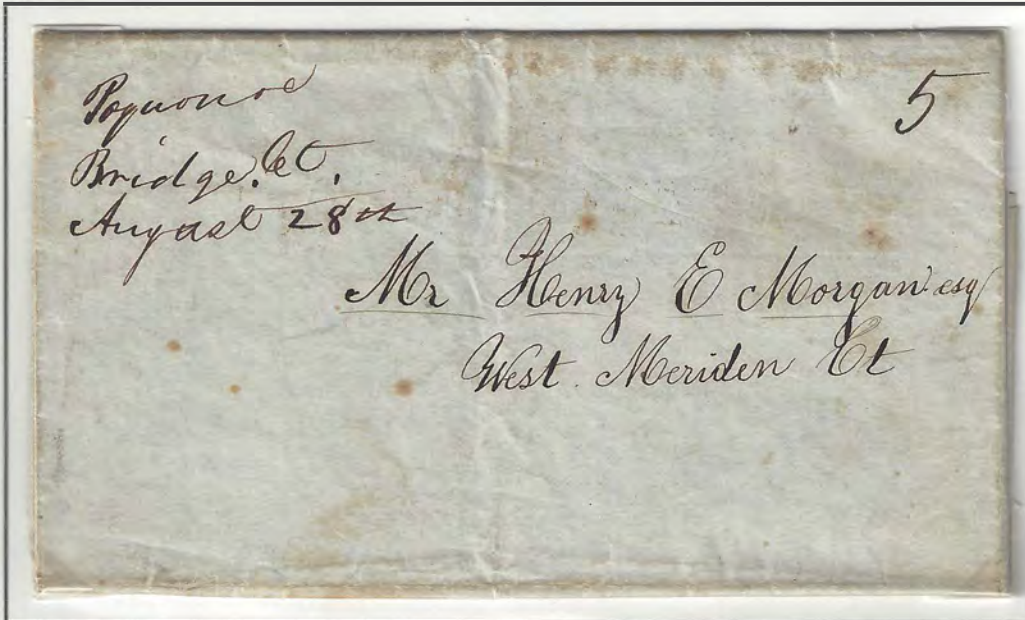 Poquonoc
5
Bridge. Ct.
August 28th
Mr Henry E Morgan esq
West. Meriden Ct